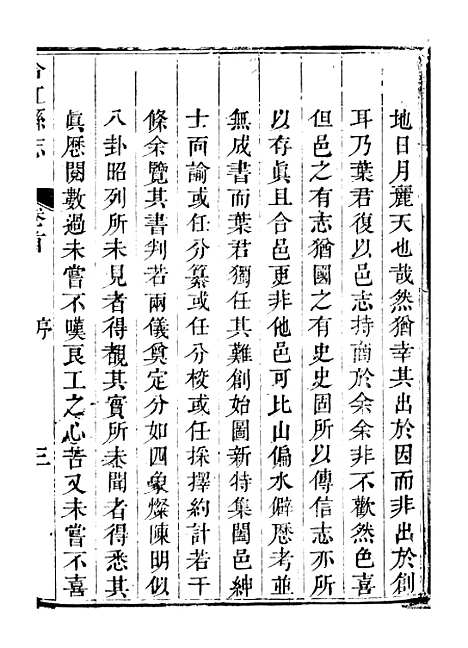 地日月麗天也哉然猶幸其出於因而非出於創
耳乃葉君復以邑志持商於余余非不歡然色喜
但邑之有志猶國之有史史固所以傳信志亦所
以存眞且合邑更非他邑可比山偏水僻歷考並
無成書而葉君獨任其難創始圖新特集闔邑紳
士面諭或任分纂或任分校或任採擇約計若干
條余覽其書判若兩儀奠定分如四象燦陳明似
八卦昭列所未見者得覩其實所未聞者得悉其
眞歷閱數過未嘗不嘆良工之心苦又未嘗不喜
合江縣志
卷首
序
三